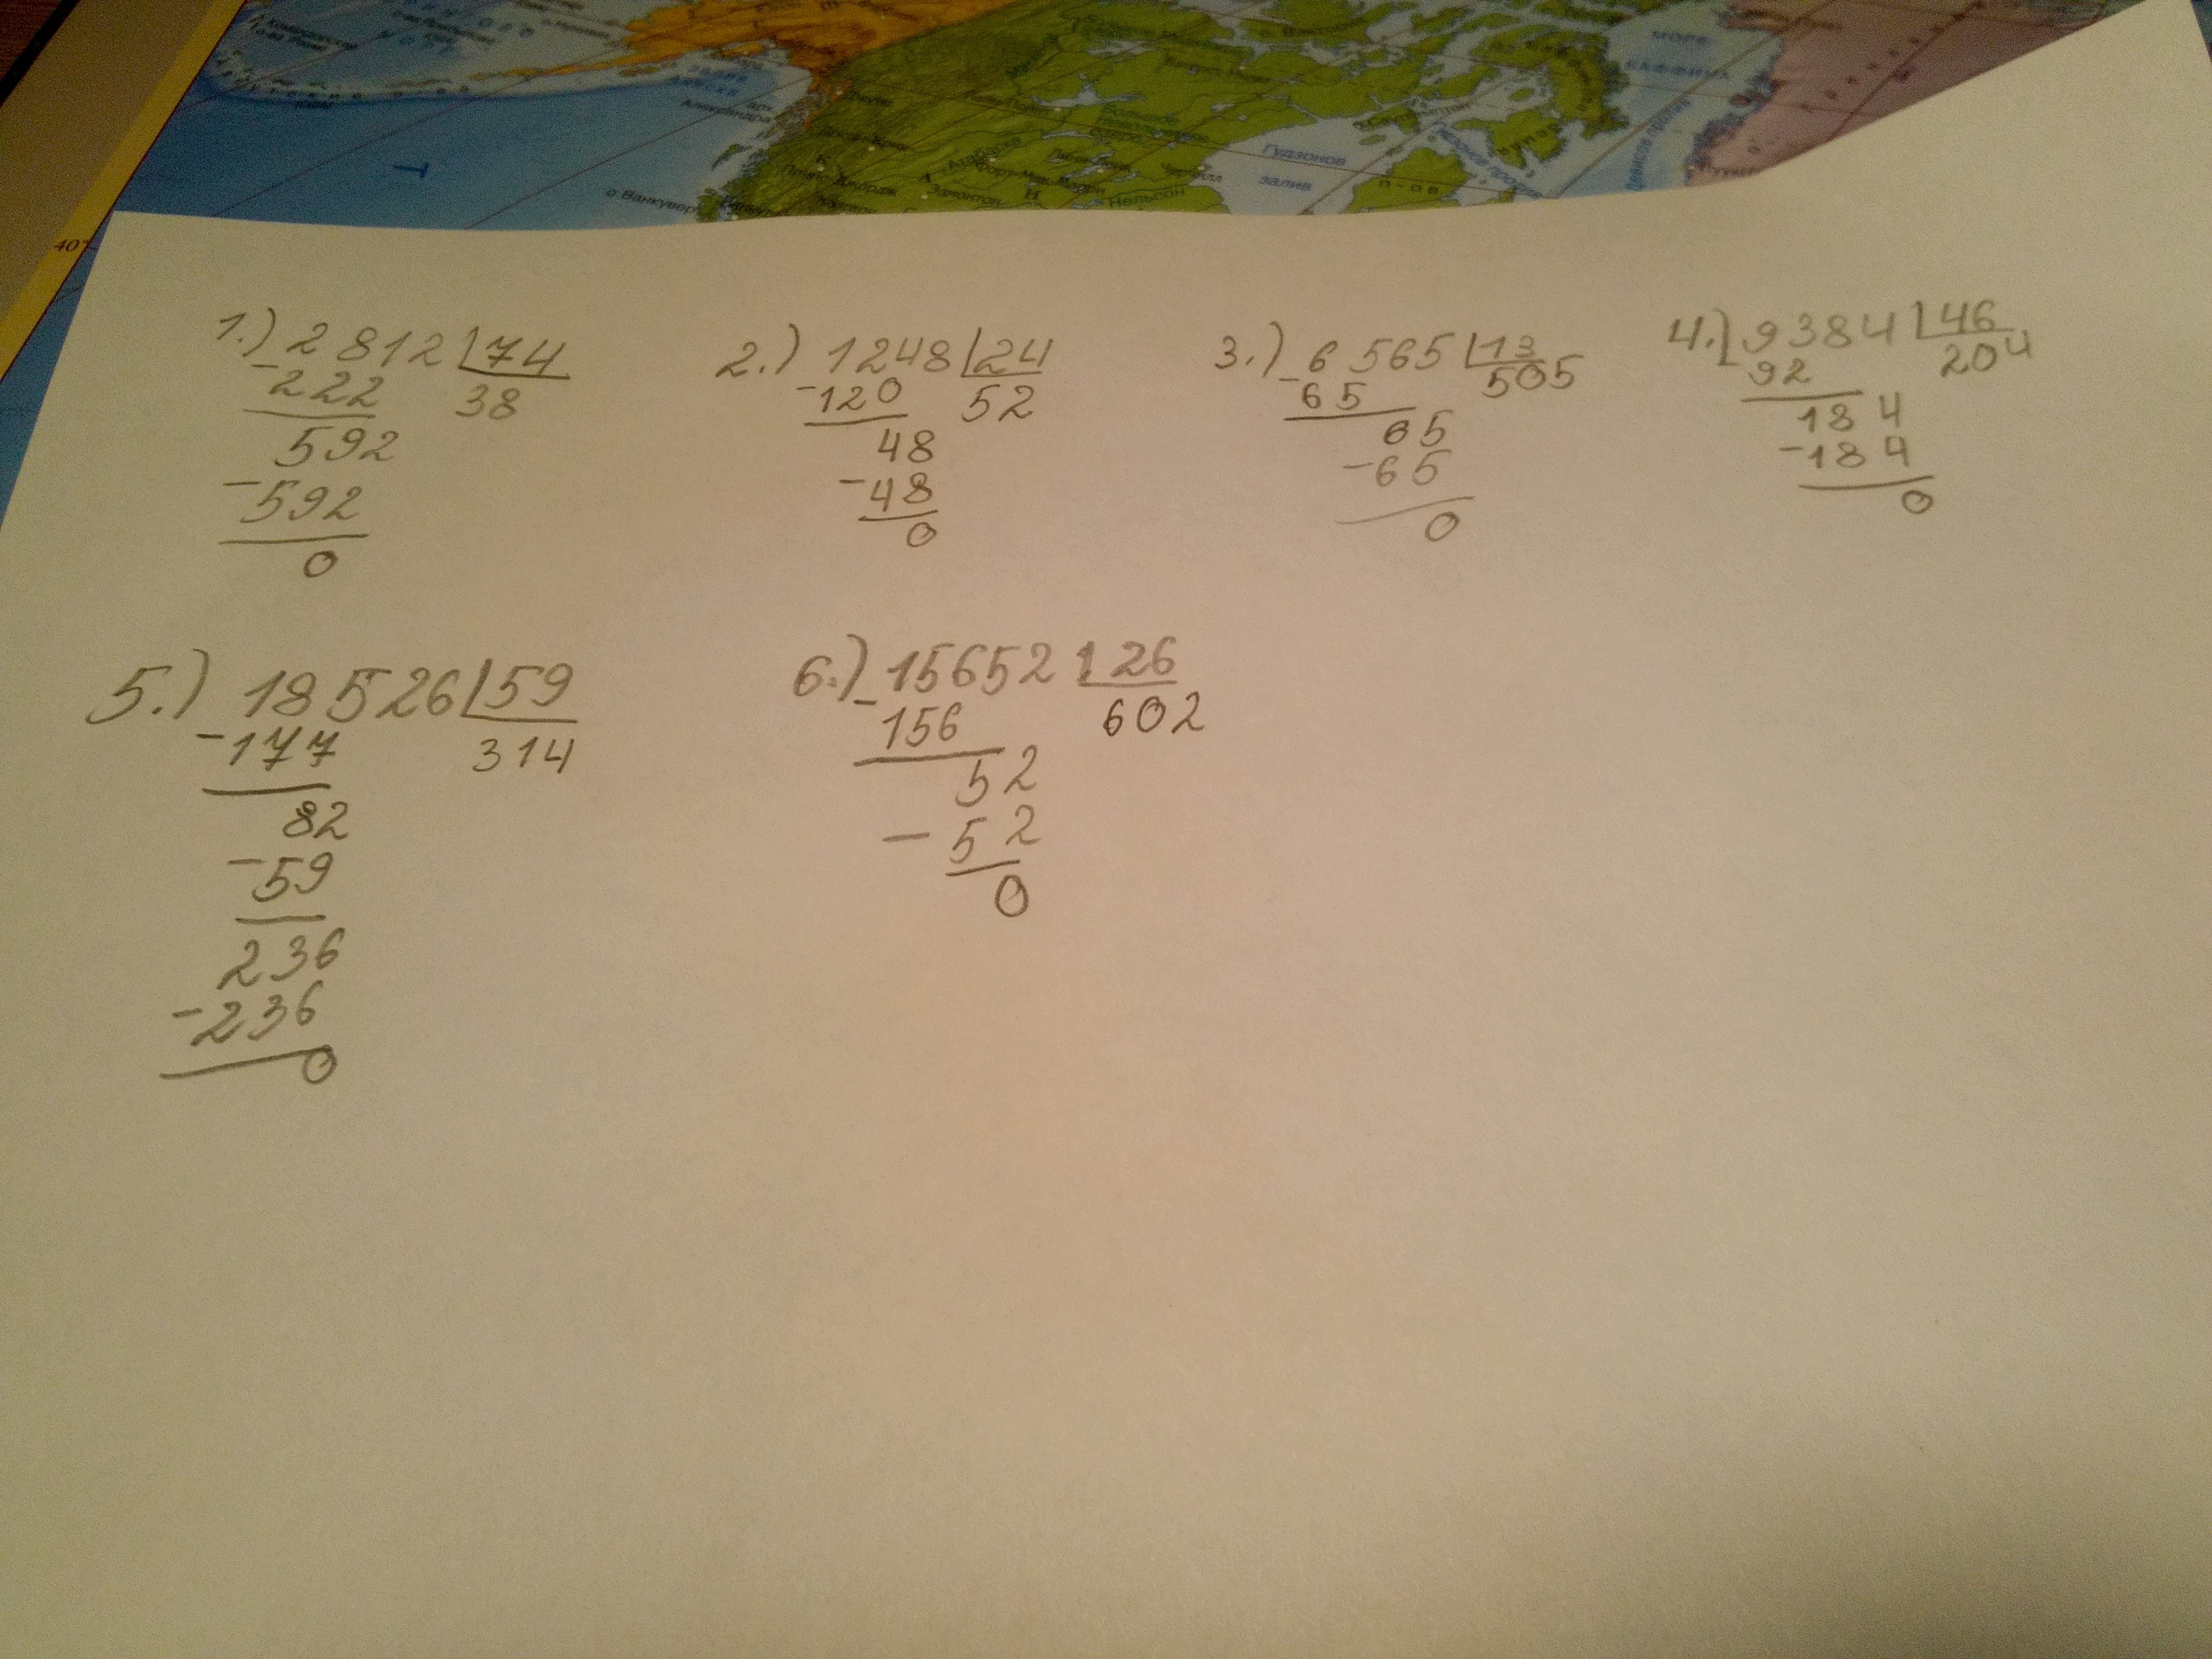 МОРЕ
БАФФИНА
Гудзонов
залив
Атабаска
Форт-Мак-Марри
Эдмонтон
Нельсон
о.Ванкувер
п-ов
40°
1.) 2812 74
-222 38
592
-592
0
2.) 1248 24
-120 52
48
-48
0
3.) 6565 13
-65 505
65
-65
0
4.) 9384 46
92 204
184
-184
0
5.) 18526 59
-177 314
82
-59
236
-236
0
6.) 15652 26
-156 602
52
-52
0